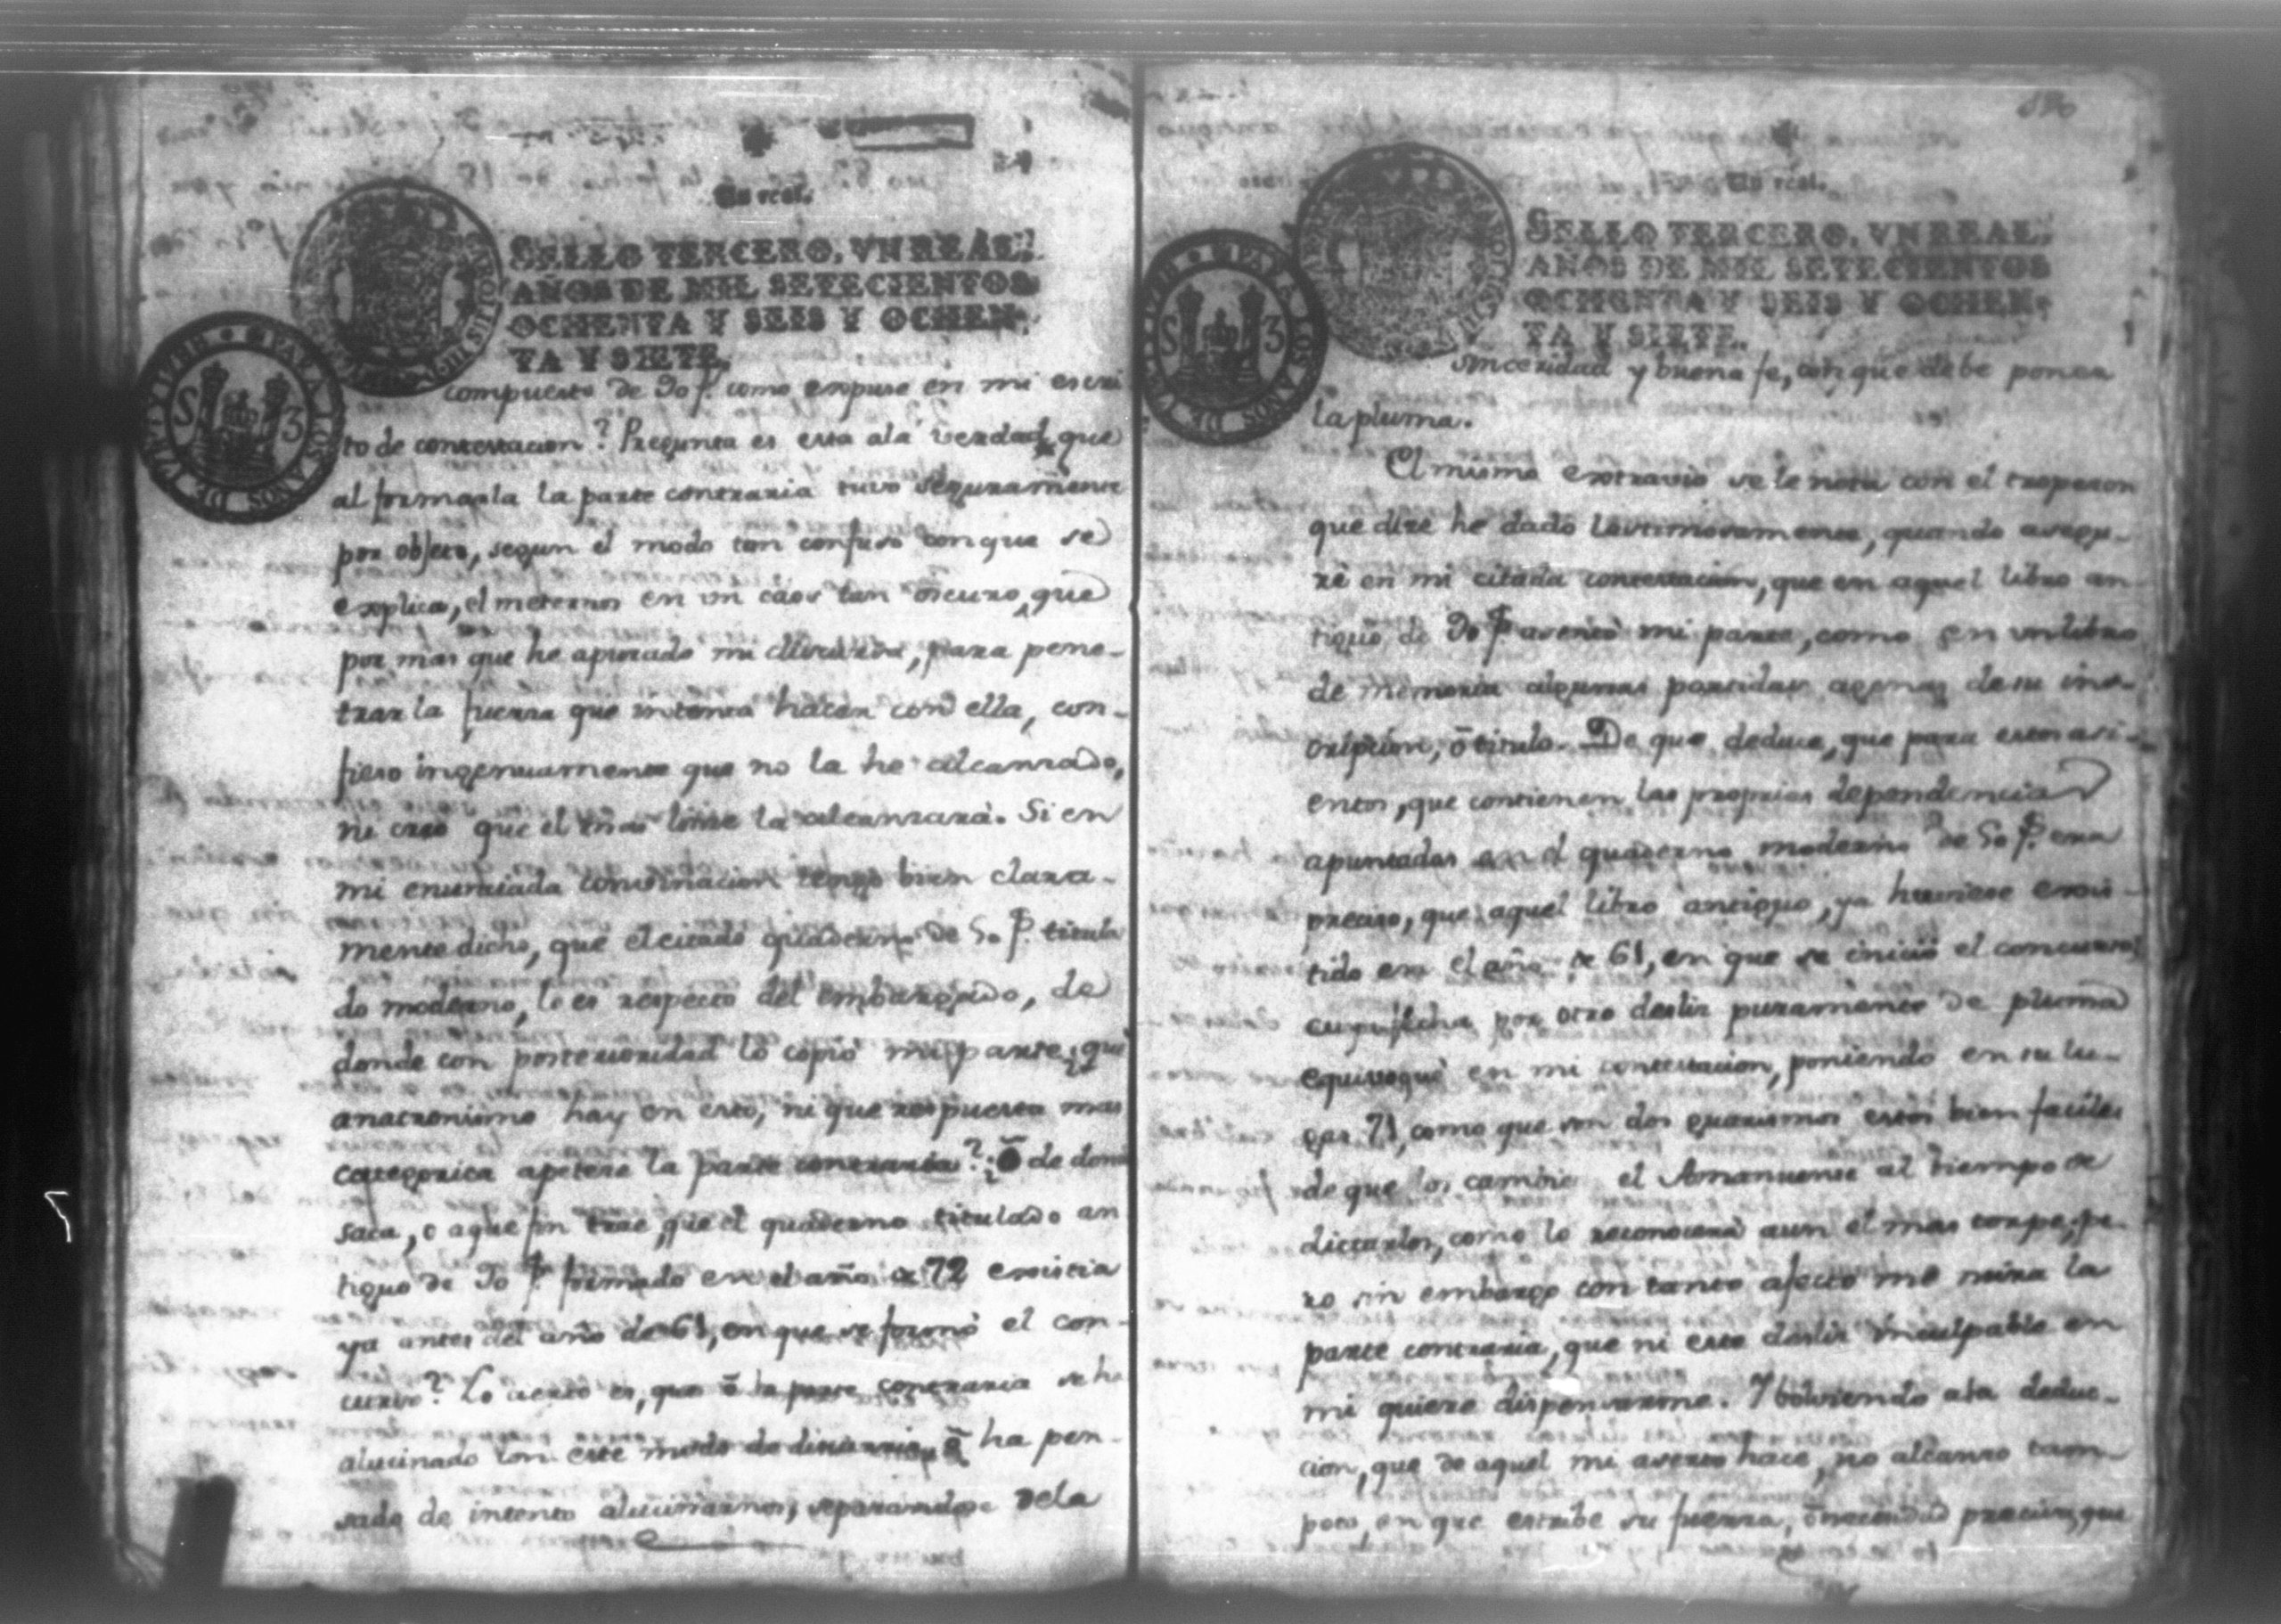 Un real.
SELLO TERCERO, VN REAL,
AÑOS DE MIL SETECIENTOS
OCHENTA Y SEIS Y OCHEN-
TA Y SIETE.
compuesto de 90 f. como expuse en mi escri
to de contestacion? Pregunta es esta ala verdad, que
al formarla la parte contraria tuvo seguramente
por objeto, segun el modo tan confuso con que se
explica, el meternos en un cáos tan oscuro, que
por mas que he apurado mi discurso, para pene-
trar la fuerza que intenta hacer con ella, con-
fieso ingenuamente que no la he alcanzado,
ni creo que el mas lince la alcanzará. Si en
mi enunciada contestacion tengo bien clara-
mente dicho, que el citado quaderno de 50 f. titula
do moderno, lo es respecto del embargado, de
donde con posterioridad lo copió mi parte, que
anacronismo hay en esto, ni que respuesta mas
categorica apetece la parte contraria? ¿ó de donde
saca, o aque fin trae, que el quaderno titulado an
tiguo de 90 f. formado en el año de 72 existia
ya antes del año de 61, en que se formó el con-
curso? Lo cierto es, que ó la parte contraria se ha
alucinado con este modo de discurrir, ó ha pen-
sado de intento alucinarnos, separandose dela
Un real.
SELLO TERCERO, VN REAL,
AÑOS DE MIL SETECIENTOS
OCHENTA Y SEIS Y OCHEN-
TA Y SIETE.
sinceridad y buena fe, con que debe poner
la pluma.
El mismo extravio se le nota con el tropezon
que dice he dado lastimosamente, quando asegu-
ré en mi citada contestacion, que en aquel libro an
tiguo de 90 f. asentó mi parte, como en un libro
de memoria algunas partidas agenas de su ins-
cripcion, ó titulo. De que deduce, que para estos asi-
entos, que contienen las proprias dependencias
apuntadas en el quaderno moderno de 50 f. era
preciso, que aquel libro antiguo, ya huviese exis-
tido en el año de 61, en que se inició el concurso,
cuya fecha por otro desliz puramente de pluma
equivoqué en mi contestacion, poniendo en su lu-
gar 71, como que son dos guarismos estos bien faciles
de que los cambie el Amanuense al tiempo de
dictarlos, como lo reconocerá aun el mas torpe; pe-
ro sin embargo con tanto afecto me mira la
parte contraria, que ni este desliz inculpable en
mi quiere dispensarme. Y bolviendo ala deduc-
cion, que de aquel mi aserto hace, no alcanzo tam-
poco, en que estribe su fuerza, ó necesidad precisa, que